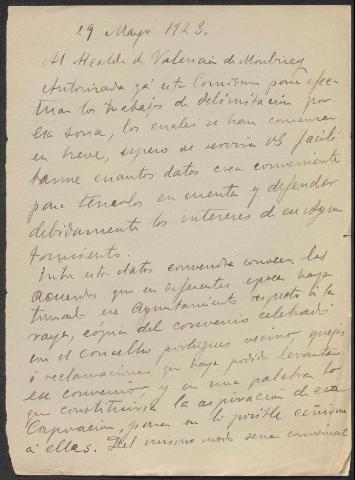 29 Mayo 1923.
Al Alcalde de Valencia de Mombuey
Autorizada ya esta Comision para efec-
tuar los trabajos de delimitación por
esa zona, los cuales se han comenzar
en breve, espero se servirá VS facili-
tarme cuantos datos crea conveniente
para tenerlos en cuenta y defender
debidamente los intereses de ese Ayun
tamiento.
Entre estos datos convendra conocer los
acuerdos que en diferentes epocas haya
tomado ese Ayuntamiento respecto á la
raya, copia del convenio celebrado
con el Concelho portugues vecino, quejas
ó reclamaciones que haya podido levantar
ese convenio, y en una palabra lo
que constituiria la aspiracion de esa
Corporacion, para en lo posible ceñirnos
á ellas. Del mismo modo sera conveniente